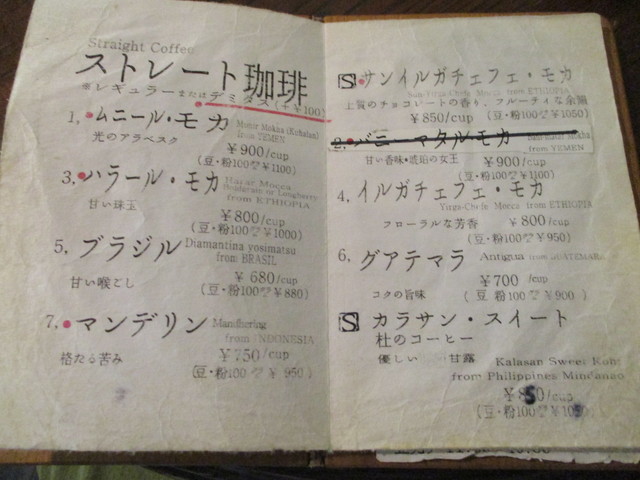 Straight Coffee
ストレート珈琲
※レギュラーまたはデミタス(+¥100)
1, ムニール・モカ Moner Mokka
from YEMEN
光のアラベスク
¥900/cup
(豆・粉100g ¥1100)
3, ハラール・モカ Harar Mocca
Longberry
from ETHIOPIA
甘い珠玉
¥800/cup
(豆・粉100g ¥1000)
5, ブラジル Diamantina yosimatsu
from BRASIL
甘い喉ごし
¥680/cup
(豆・粉100g ¥880)
7, マンデリン Mandhering
from INDONESIA
格たる苦み
¥750/cup
(豆・粉100g ¥950)
S サンイルガチェフェ・モカ
Mocca from ETHIOPIA
上質のチョコレートの香り、フルーティな余韻
¥850/cup (豆・粉100g ¥1050)
2, バニーマタルモカ
from YEMEN
甘い香味・琥珀の女王 ¥900/cup
(豆・粉100g ¥1100)
4, イルガチェフェ・モカ
Yirga-Chefe Mocca from ETHIOPIA
フローラルな芳香 ¥800/cup
(豆・粉100g ¥950)
6, グアテマラ Antigua from GUATEMARA
¥700/cup
コクの旨味 (豆・粉100g ¥900)
S カラサン・スイート
杜のコーヒー
優しい 甘露 Kalasan Sweet
from Philippines Mindanao
¥850/cup
(豆・粉100g